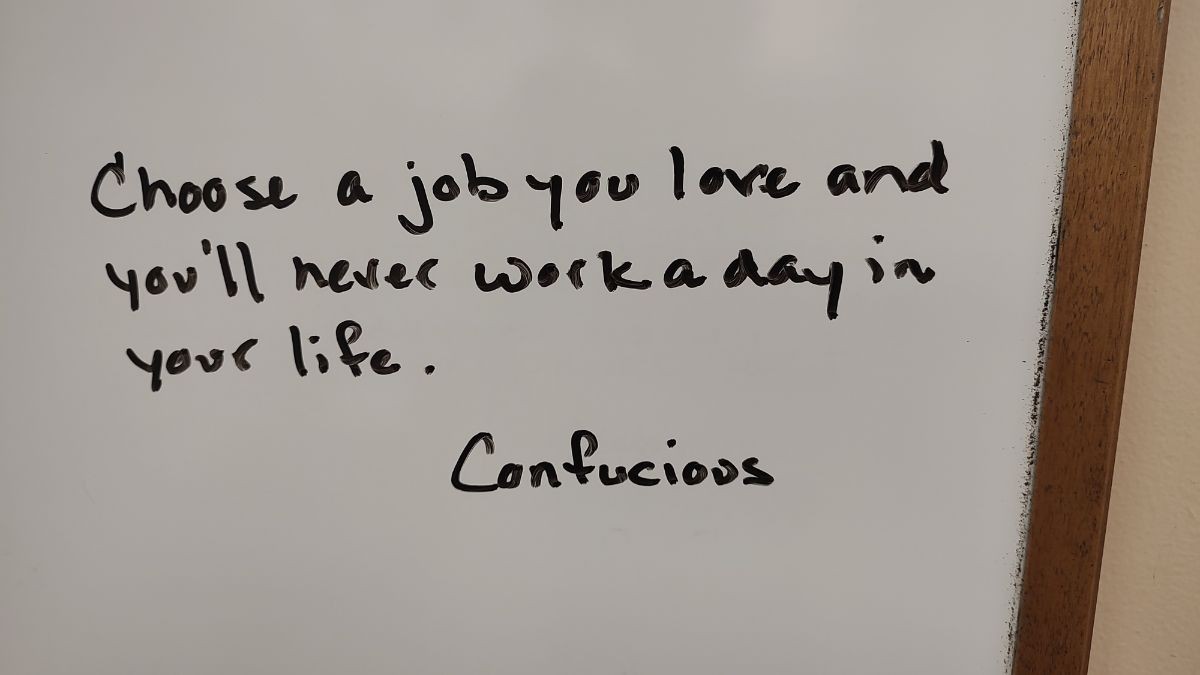 Choose a job you love and
you'll never work a day in
your life.
Confucious